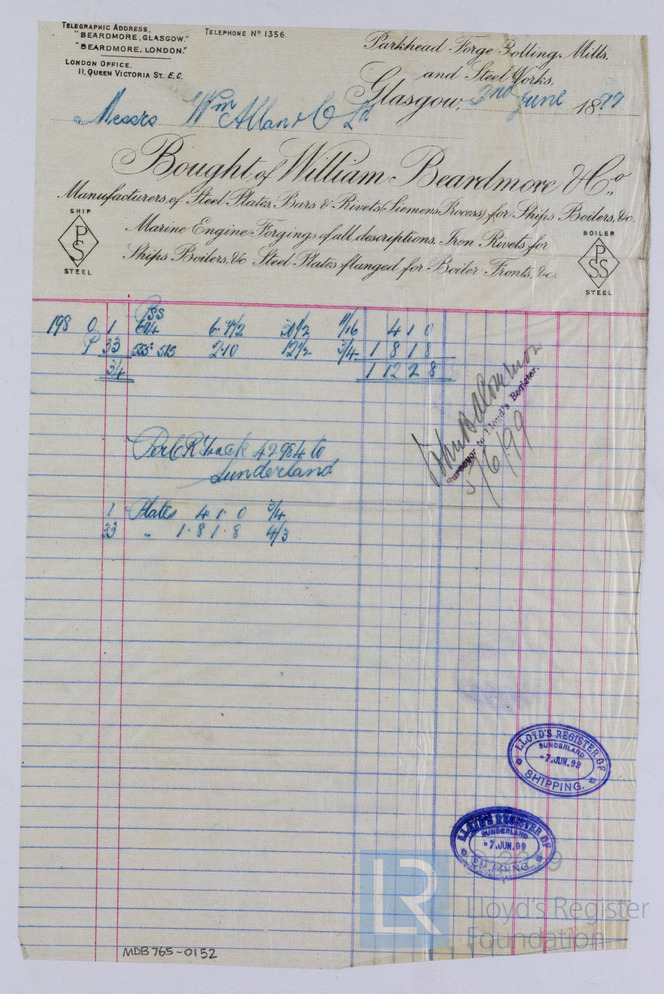 TELEGRAPHIC ADDRESS,
"BEARDMORE, GLASGOW."
"BEARDMORE, LONDON."
TELEPHONE No 1356.
LONDON OFFICE.
11, QUEEN VICTORIA ST. E.C.
Parkhead Forge Rolling Mills,
and Steel Works,
Glasgow, 2nd June 1899
Messrs Wm Allan & Co Ld
Bought of William Beardmore & Co.,
Manufacturers of Steel Plates, Bars & Rivets (Siemens Process) for Ships Boilers, &c.
Marine Engine Forgings of all descriptions, Iron Rivets for
Ships Boilers, &c Steel Plates flanged for Boiler Fronts, &c.
SHIP
PS
STEEL
BOILER
PSS
STEEL
PSS
198 O 1 6·7½ 30½ 11/16 4 1 0
P 33 2·10 12½ 3/4 1 8 1 8
34 1 12 2 8
Per C.R. Truck 42984 to
Sunderland
1 Plates 4 1 0 3/4
33 " 1 · 8 1 · 8 4/3
Surveyor to Lloyd's Register.
5/6/99
LLOYD'S REGISTER OF
SUNDERLAND
-7.JUN.99
SHIPPING.
LLOYD'S REGISTER OF
SUNDERLAND
-7.JUN.99
SHIPPING.
LR
Lloyd's Register
Foundation
MDB765-0152